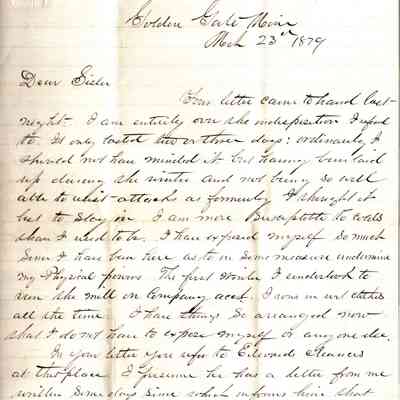 Golden Gate Mine
Mch 23rd 1879
Dear Sister
Your letter came to hand last
night. I am entirely over the indisposition I refered
to. It only lasted two or three days: ordinarily I
should not have minded it but having been laid
up during the winter and not being so well
able to resist attacks as formerly I thought it
best to stay in. I am more Suseptible to colds
than I used to be. I have exposed myself so much
Since I have been here as to in some measure undermine
my Physical powers. The first Winter I undertook to
run the mill on Company acct. I was in wet clothes
all the time. I have things so arranged now
that I do not have to expose myself or anyone else.
In your letter you refer to Edward
at that place I presume he has a letter from me
written some days since which informs him that